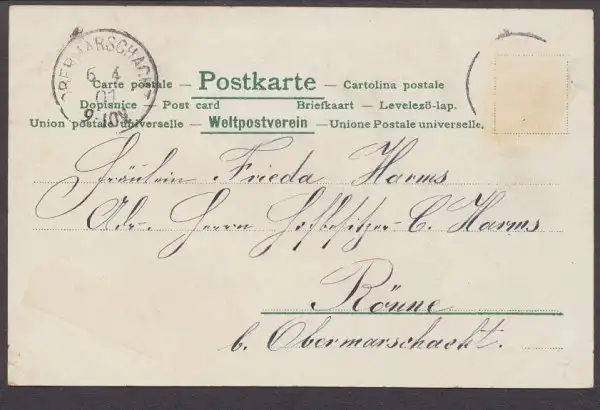 OBERMARSCHACHT
6 4
01
9-10V
Carte postale — Postkarte — Cartolina postale
Dopisnice — Post card Briefkaart — Levelezö-lap.
Union postale universelle — Weltpostverein — Unione Postale universelle.
Fräulein Frieda Harms
Adr. Herrn Hofbesitzer C. Harms
Rönne
b. Obermarschacht.